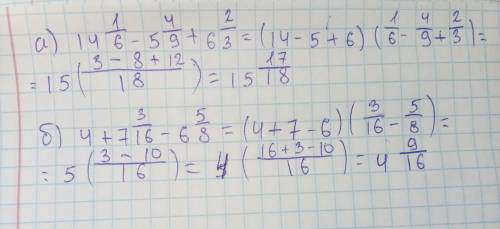 а) 14 1/6 - 5 4/9 + 6 2/3 = (14 - 5 + 6) (1/6 - 4/9 + 2/3) =
= 15 (3 - 8 + 12/18) = 15 17/18
б) 4 + 7 3/16 - 6 5/8 = (4 + 7 - 6) (3/16 - 5/8) =
= 5 (3 - 10/16) = 4 (16 + 3 - 10/16) = 4 9/16